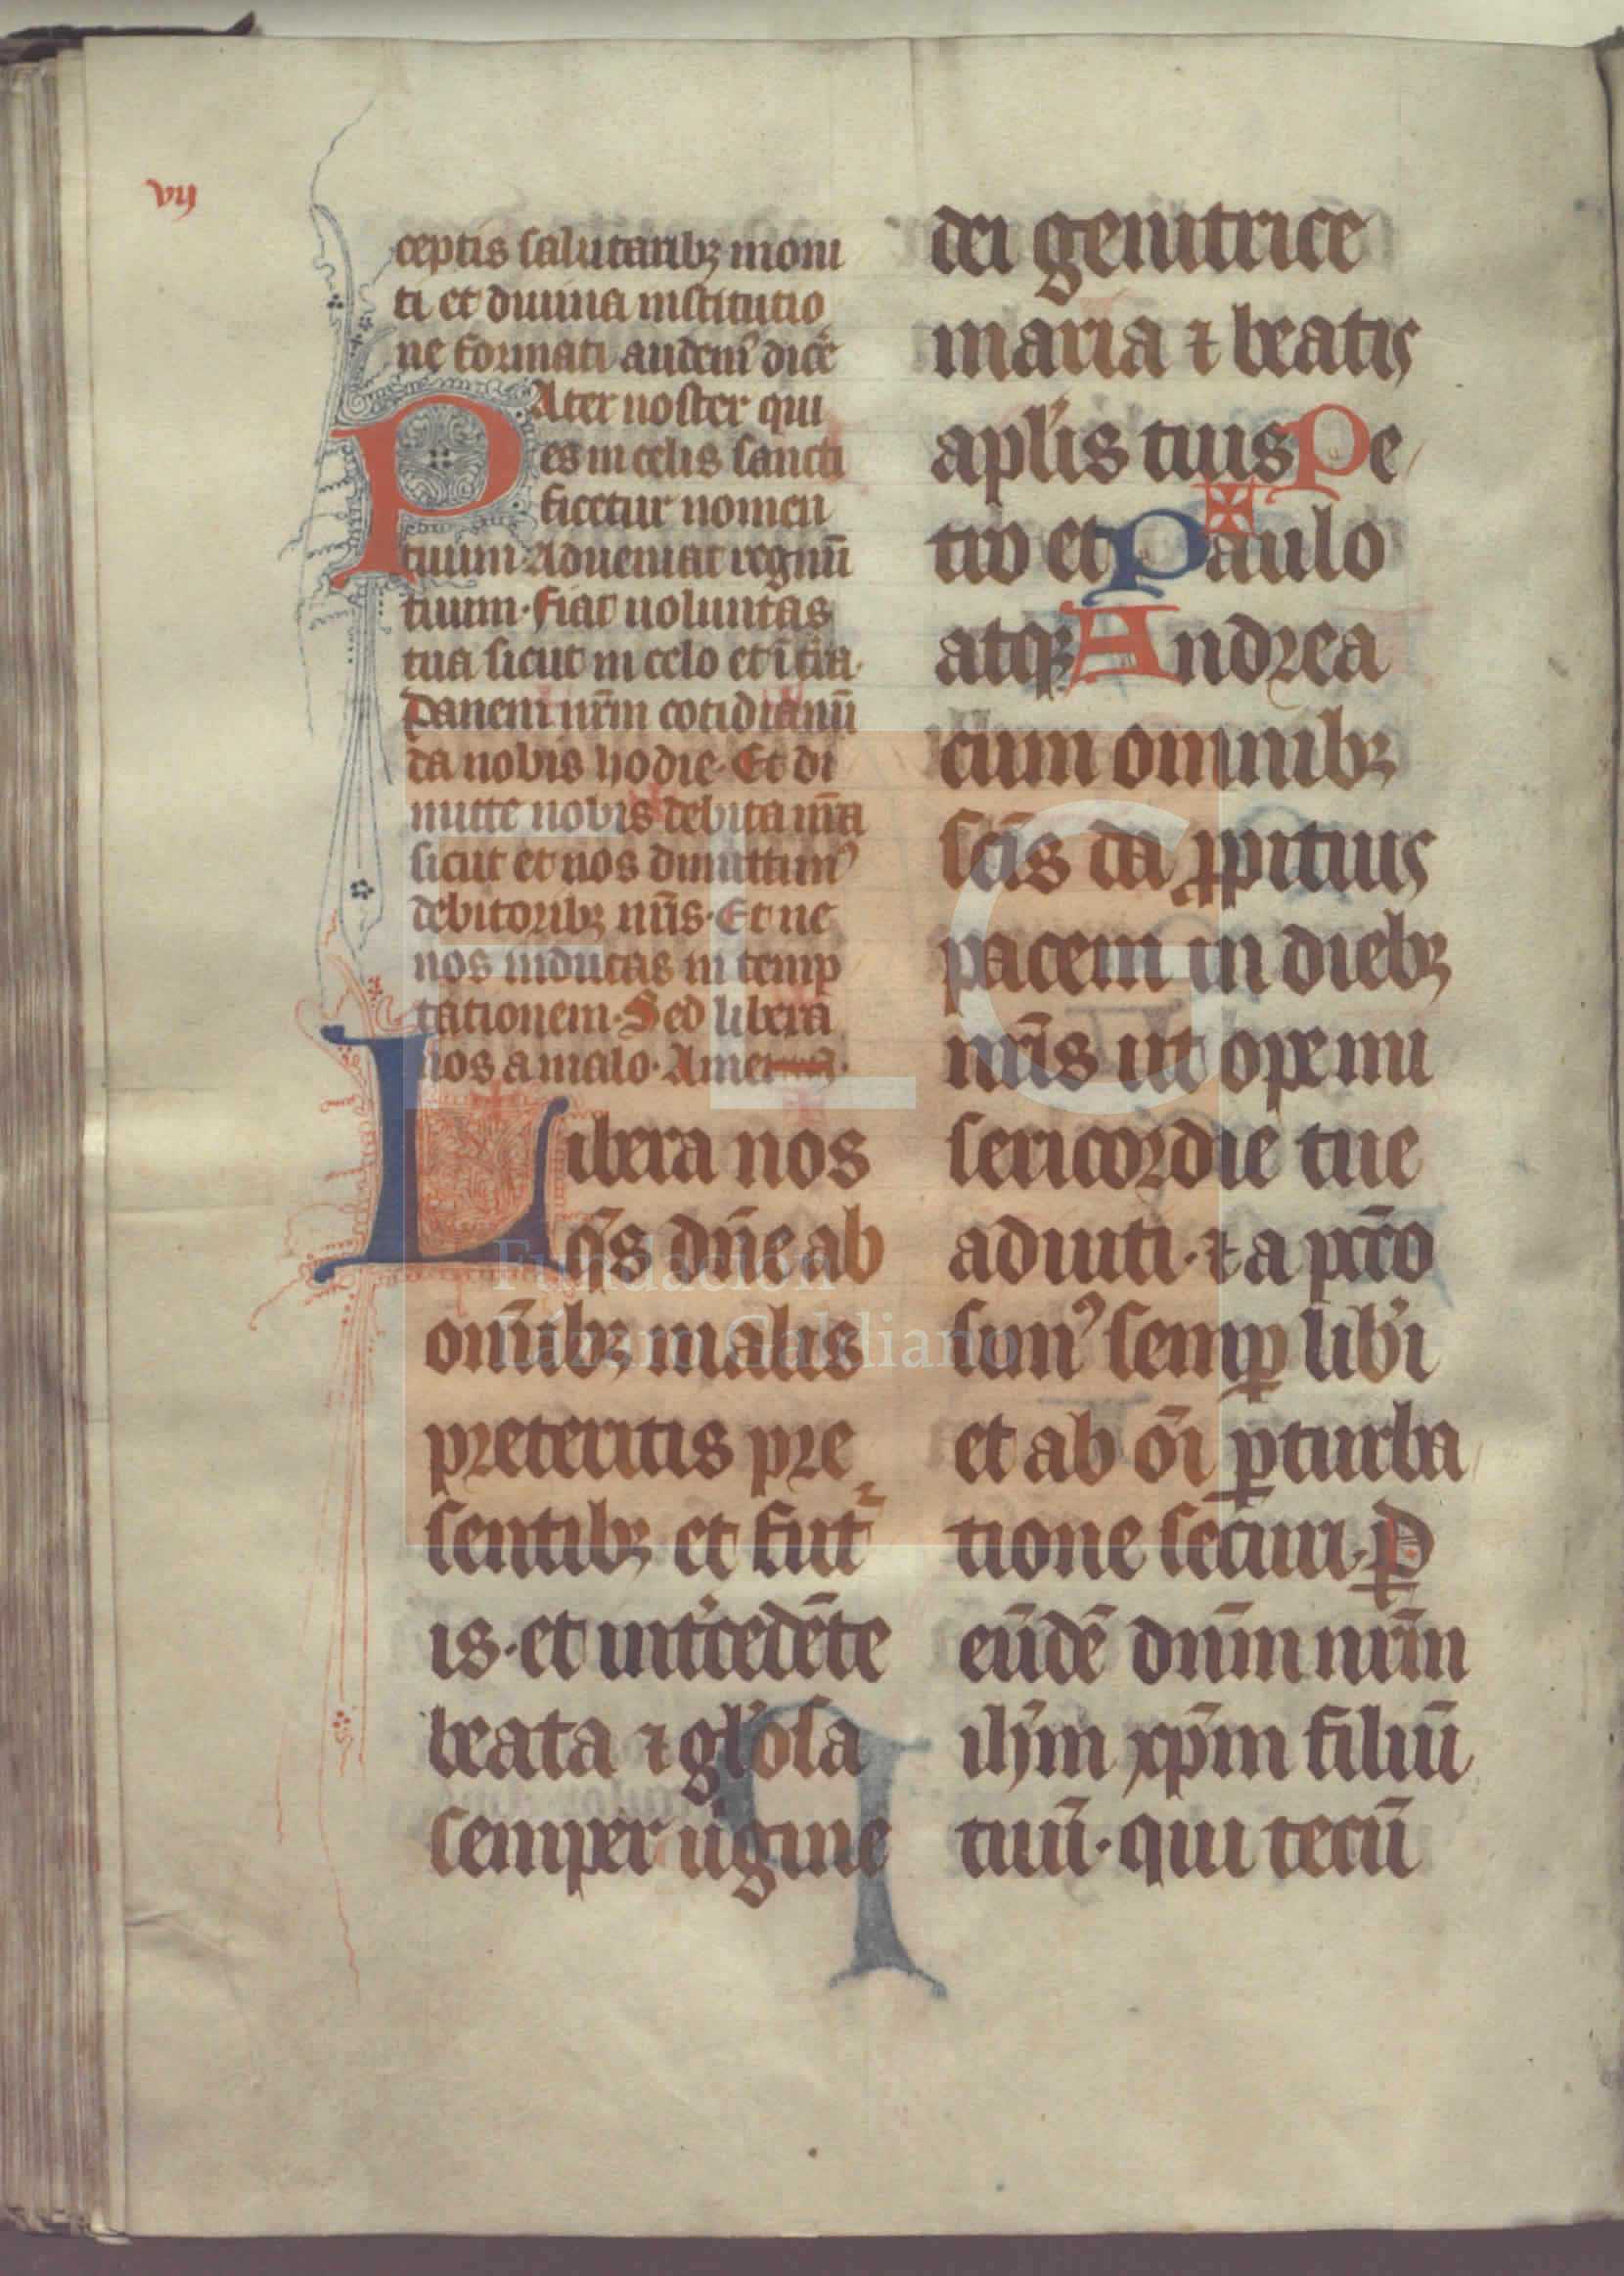 vij
ceptis salutaribꝫ moni
ti et diuina institutio
ne formati audemꝰ dice᷑
PAter noster qui
es in celis sancti
ficetur nomen
tuum Adueniat regnū
tuum · fiat uoluntas
tua sicut in celo et ī t̄ra ·
Panem nr̄m cotidianū
da nobis hodie · Et di
mitte nobis debita nr̄a
sicut et nos dimittimꝰ
debitoribꝫ nr̄is · Et ne
nos inducas in temp
tationem · Sed libera
nos a malo · Amen
Libera nos
q̄s dn̄e ab
om̄ibꝫ malis
preteritis pre
sentibꝫ et futr̄
is · et int̾cedēte
beata ⁊ gl̾osa
semper uirgine
dei genitrice
maria ⁊ beatis
apl̾is tuis Pe
tro et Paulo
atqꝫ Andrea
cum omnibꝫ
sc̄is da ꝓpitius
pacem in diebꝫ
nr̄is ut ope mi
sericordie tue
adiuti · ⁊ a pcc̄o
simꝰ semꝑ lib̾i
et ab oī ꝑturba
tione securi · P̲
eūdē dn̄m nr̄m
ihm̄ xp̄m filiū
tuū · qui tecū
FLG
Fundación
Lázaro Galdiano